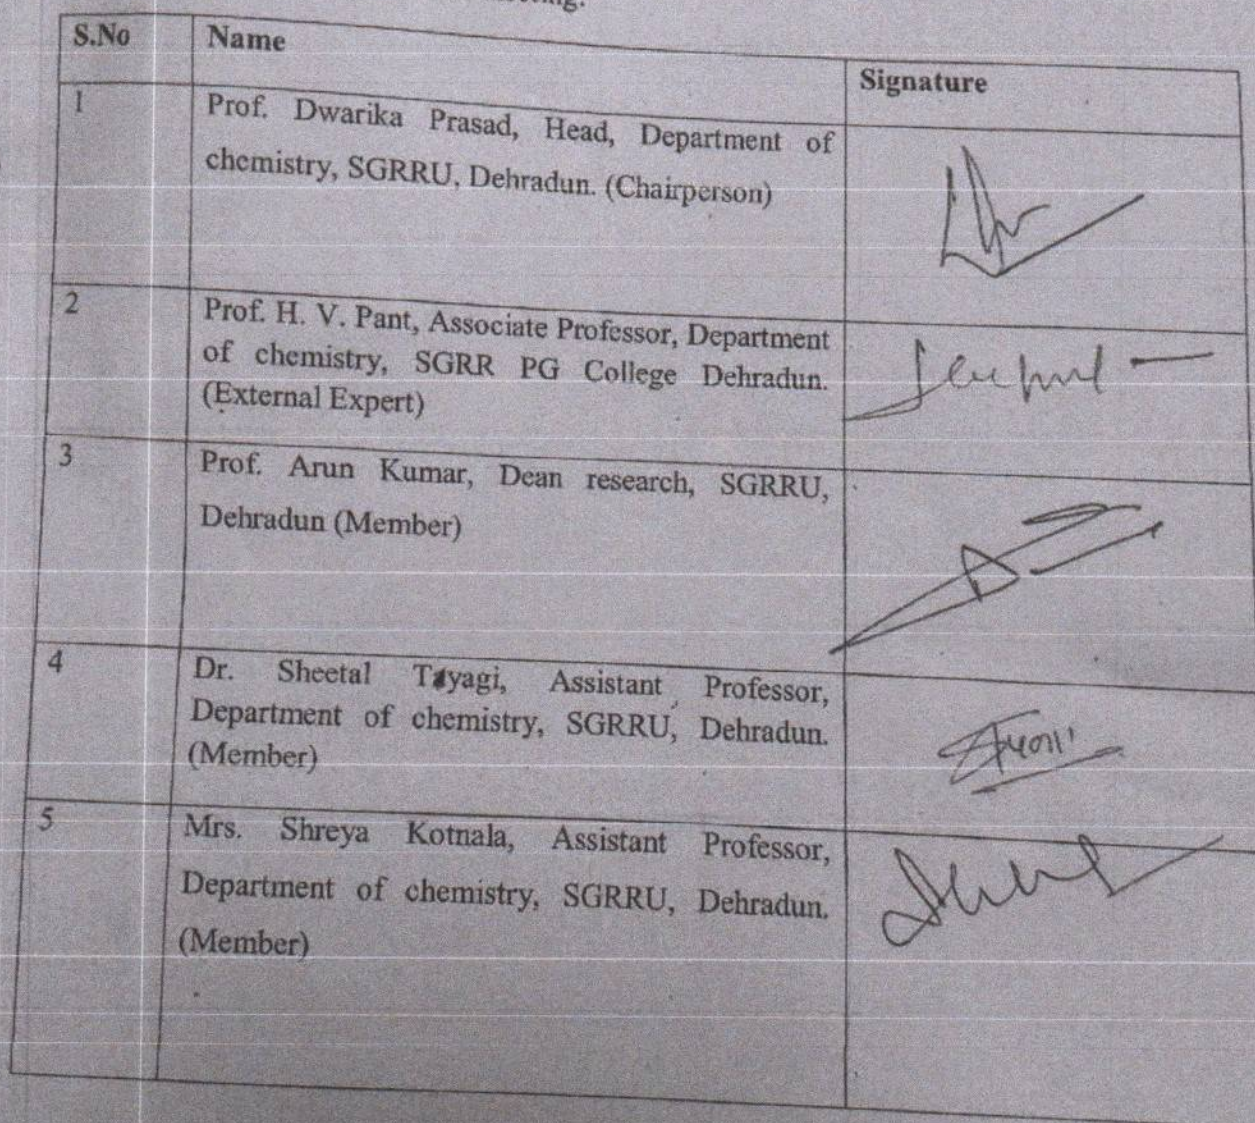 S.No Name Signature
1 Prof. Dwarika Prasad, Head, Department of
chemistry, SGRRU, Dehradun. (Chairperson)
2 Prof. H. V. Pant, Associate Professor, Department
of chemistry, SGRR PG College Dehradun.
(External Expert)
3 Prof. Arun Kumar, Dean research, SGRRU,
Dehradun (Member)
4 Dr. Sheetal Tayagi, Assistant Professor,
Department of chemistry, SGRRU, Dehradun.
(Member)
5 Mrs. Shreya Kotnala, Assistant Professor,
Department of chemistry, SGRRU, Dehradun.
(Member)